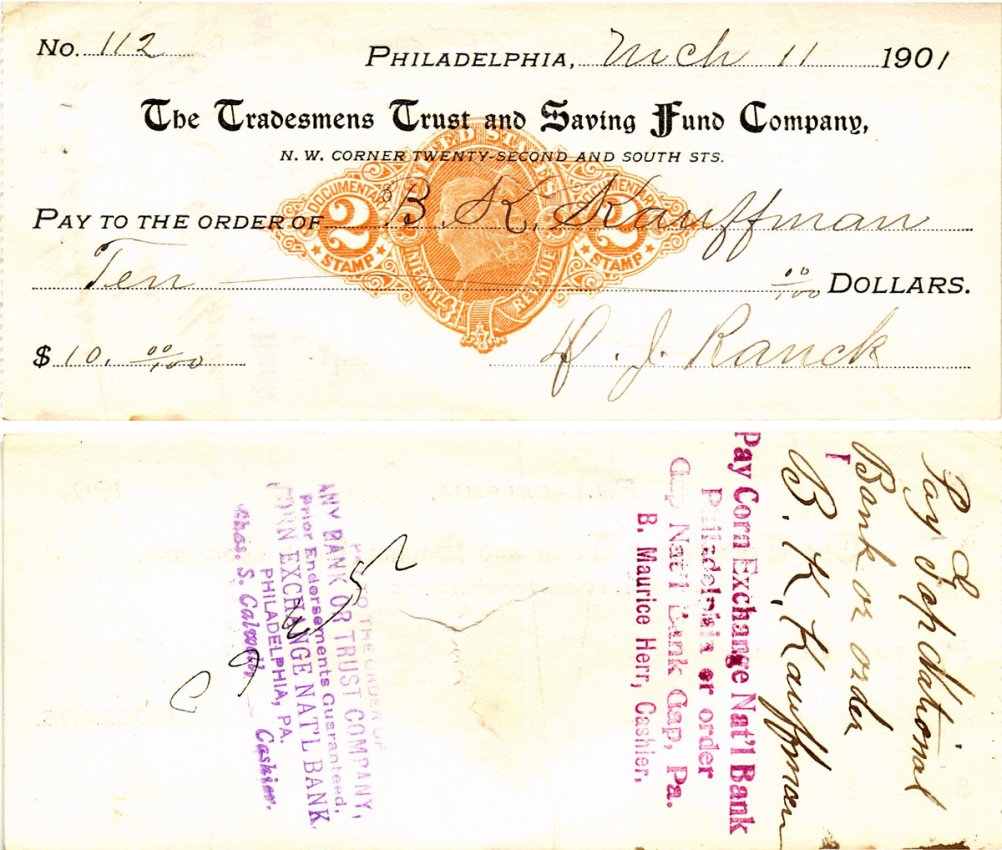 No. 112 PHILADELPHIA, Mch 11 1901
The Tradesmens Trust and Saving Fund Company,
N. W. CORNER TWENTY-SECOND AND SOUTH STS.
UNITED STATES
DOCUMENTARY 2 STAMP
DOCUMENTARY 2 STAMP
INTERNAL REVENUE
PAY TO THE ORDER OF B. K. Kauffman
Ten 00/100 DOLLARS.
$ 10. 00/100 D. J. Ranck
Pay Gap National
Bank or order
B. K. Kauffman
Pay Corn Exchange Nat'l Bank
Philadelphia or order
Gap Nat'l Bank Gap, Pa.
B. Maurice Herr, Cashier,
PAY TO THE ORDER OF
ANY BANK OR TRUST COMPANY,
Prior Endorsements Guaranteed,
CORN EXCHANGE NAT'L BANK
PHILADELPHIA, PA.
Chas. S. Calwell, Cashier.